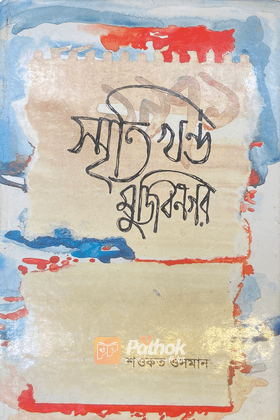 ১৯৭১
স্মৃতিখণ্ড
মুজিবনগর
Pathok
শওকত ওসমান